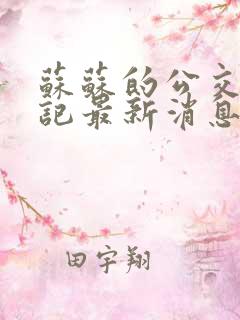 蘇蘇的公交
記最新消息
田宇翔